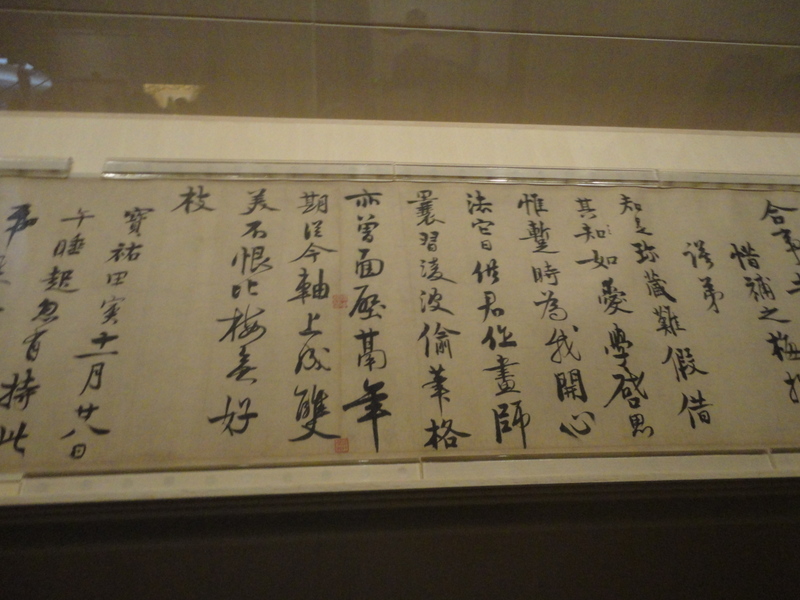 合
惜補之梅
譜弟
知是珍藏難假借
其知如愛學啟思
惟暫時為我開心
法它日供君作畫師
曩習淩波偷筆格
亦曾面壓鬲年
期從今軸上成雙
美不恨比梅無好
枝
寶祐甲寅十一月廿八日
午睡起忽有持此